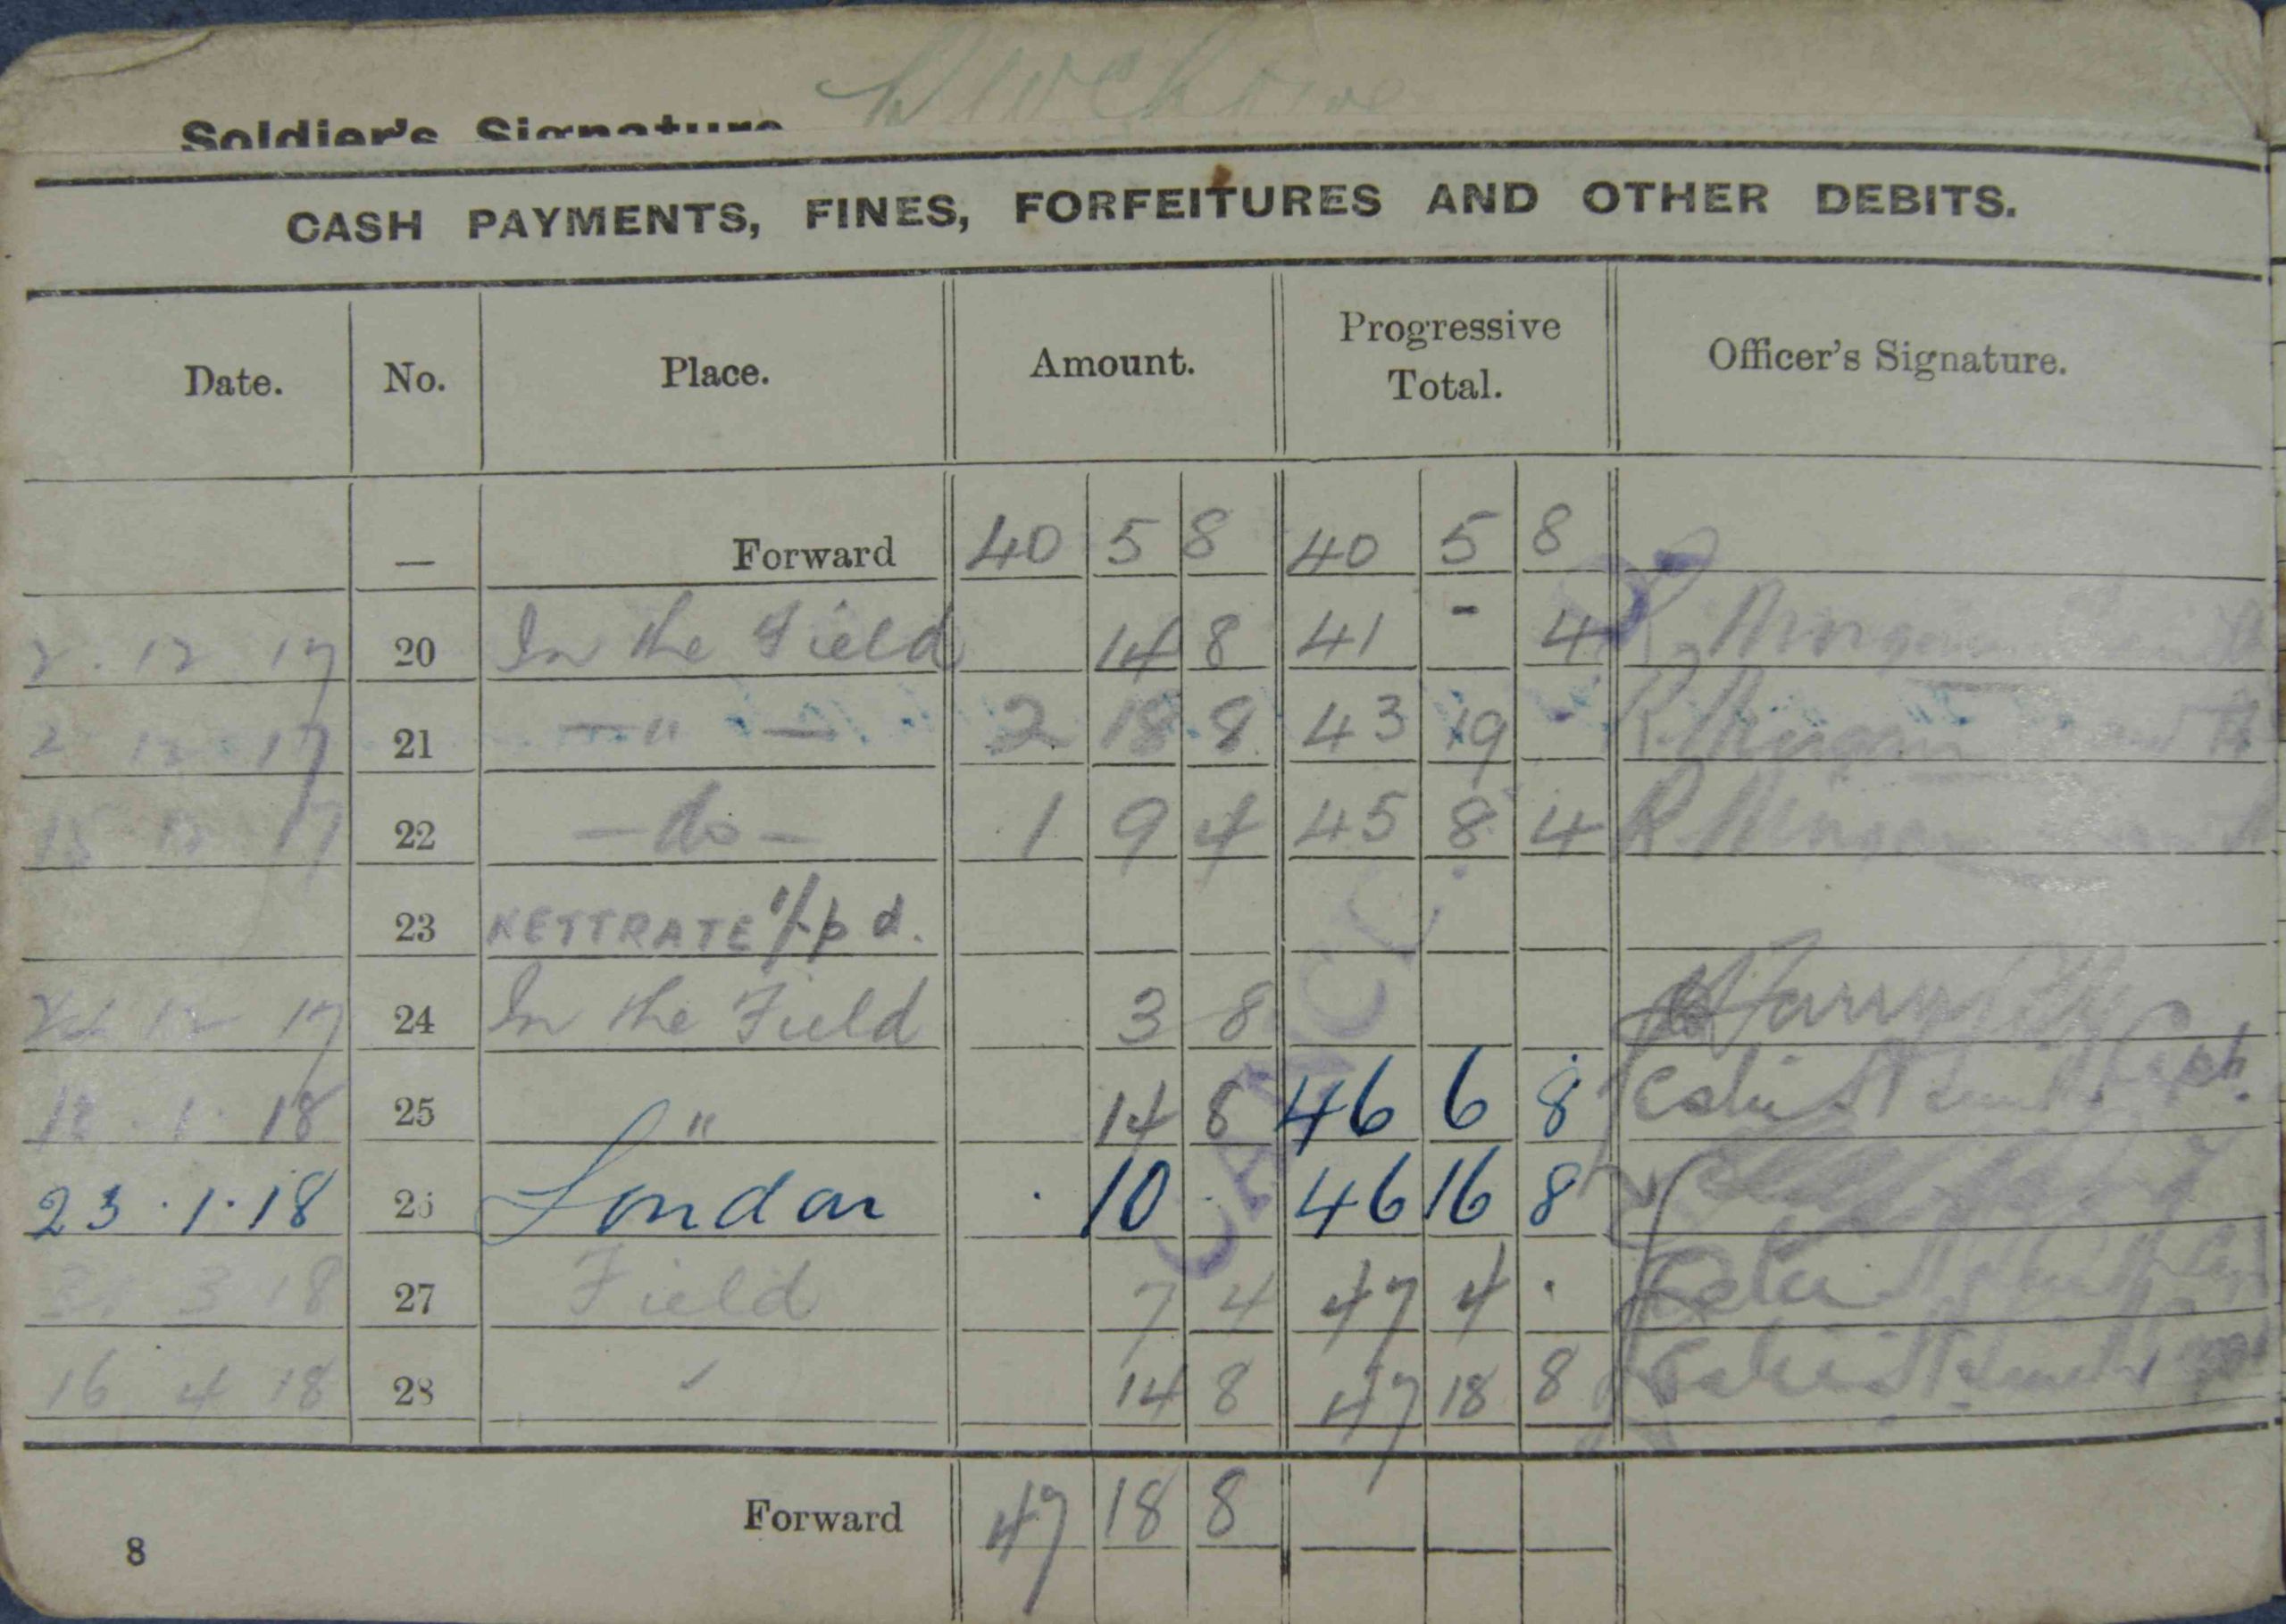 Soldier's Signature
CASH PAYMENTS, FINES, FORFEITURES AND OTHER DEBITS.
Date. No. Place. Amount. Progressive Total. Officer's Signature.
— Forward 40 5 8 40 5 8
2 . 12 17 20 In the Field 14 8 41 - 4
2 12 17 21 — " — 2 18 8 43 19 - R.
15 12 17 22 — do — 1 9 4 45 8 4 R
23 NETT RATE 1/- p d.
12 17 24 In the Field 3 8
1 . 18 25 " 14 8 46 6 8 Capt.
23 . 1 . 18 26 London . 10 . 46 16 8
3 18 27 Field 7 4 47 4 .
16 4 18 28 14 8 47 18 8
Forward 47 18 8
8
CANC